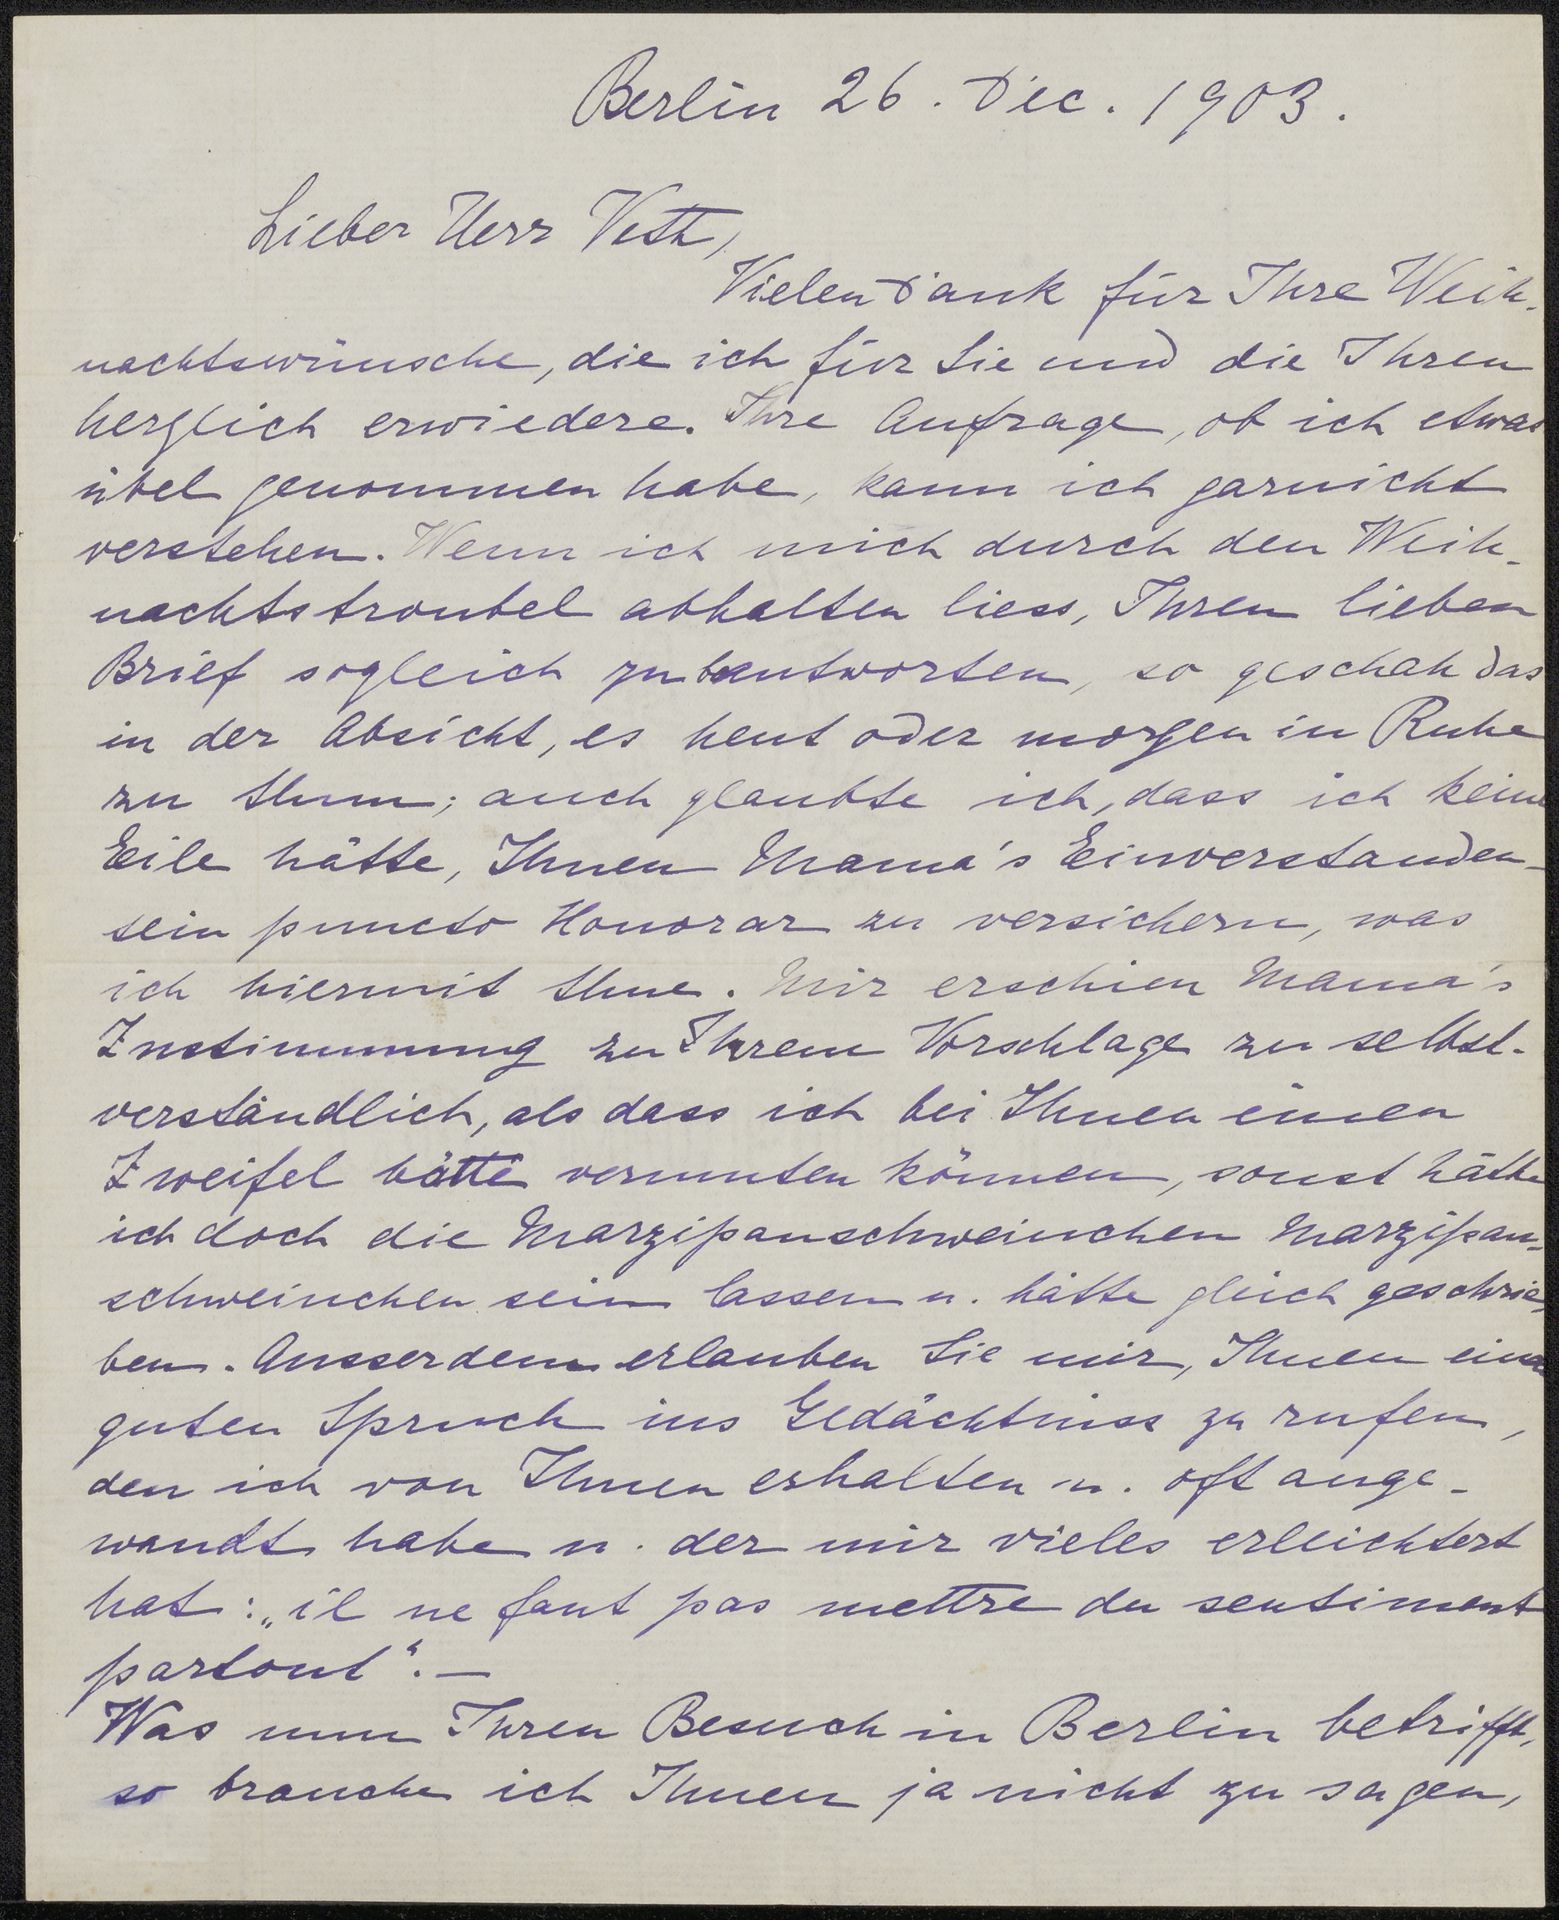 Berlin 26. Dec. 1903.
Lieber Herr Veth,
Vielen Dank für Ihre Weih-
nachtswünsche, die ich für Sie und die Ihren
herzlich erwiedere. Ihre Anfrage, ob ich etwas
übel genommen habe, kann ich garnicht
verstehen. Wenn ich mich durch den Weih-
nachtstroubel abhalten liess, Ihren lieben
Brief sogleich zu beantworten, so geschah das
in der Absicht, es heut oder morgen in Ruhe
zu thun; auch glaubte ich, dass ich keine
Eile hätte, Ihnen Mama's Einverstanden-
sein puncto Honorar zu versichern, was
ich hiermit thue. Mir erschien Mama's
Zustimmung zu Ihrem Vorschlage zu selbst-
verständlich, als dass ich bei Ihnen einen
Zweifel hätte vermuten können, sonst hätte
ich doch die Marzipanschweinchen Marzipan-
schweinchen sein lassen u. hätte gleich geschrie-
ben. Ausserdem erlauben Sie mir, Ihnen einen
guten Spruch ins Gedächtniss zu rufen,
den ich von Ihnen erhalten u. oft ange-
wandt habe u. der mir vieles erleichtert
hat: „il ne faut pas mettre du sentiment
partout“. —
Was nun Ihren Besuch in Berlin betrifft,
so brauche ich Ihnen ja nicht zu sagen,